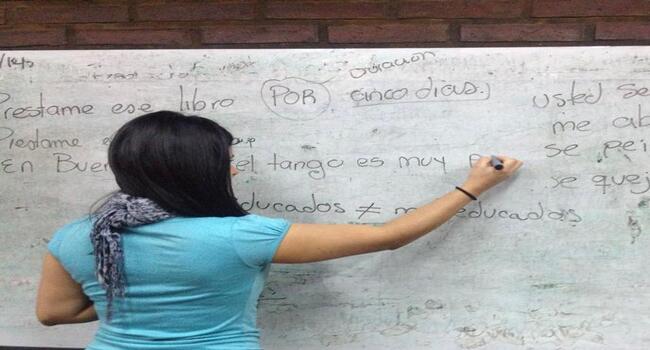 Duración
Prestame ese libro (POR) cinco dias.)
Prestame
En Buen el tango es muy
educados ≠ educados
usted se
me ab
se pei
se quej